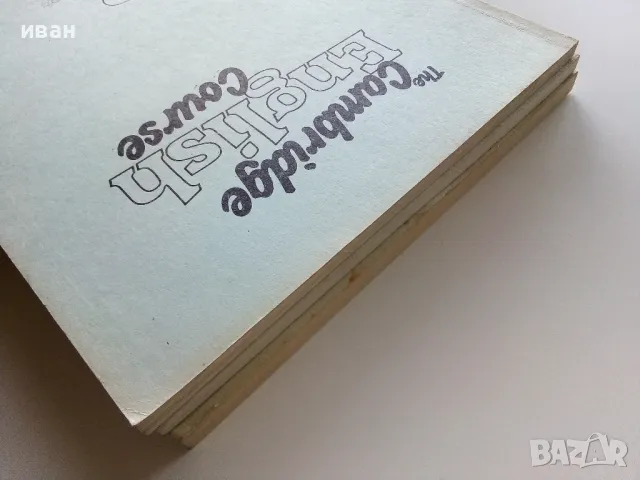 иван
The
Cambridge
English
Course
BAZAR